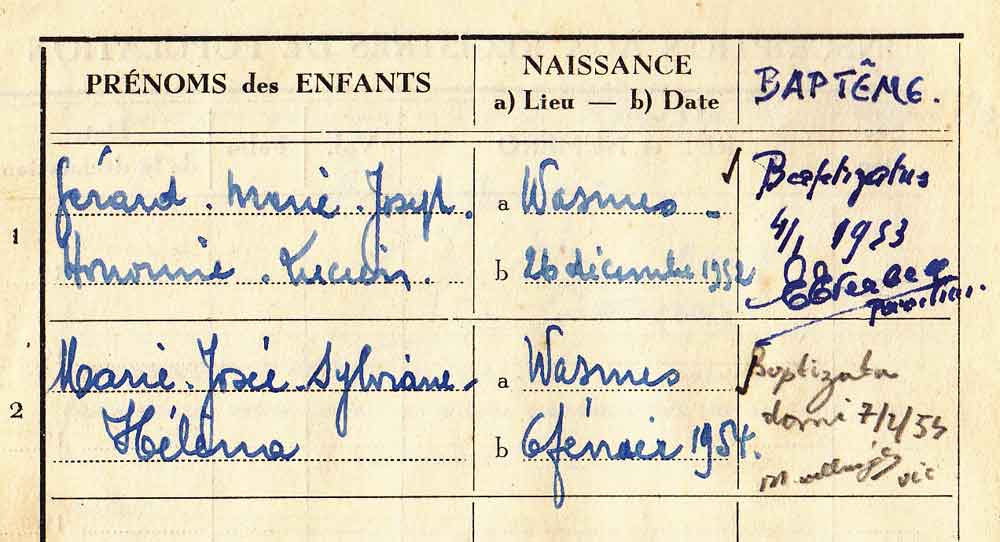 PRÉNOMS des ENFANTS
NAISSANCE
a) Lieu — b) Date
BAPTÊME.
1
Gérard . Marie . Joseph.
Honorine . Lucien.
a Wasmes -
b 26 décembre 1952
Baptizatus
4/1 1953
2
Marie - Josée - Sylviane -
Héléna
a Wasmes
b 6 février 1954.
Baptizata
domi 7/2/54
vic